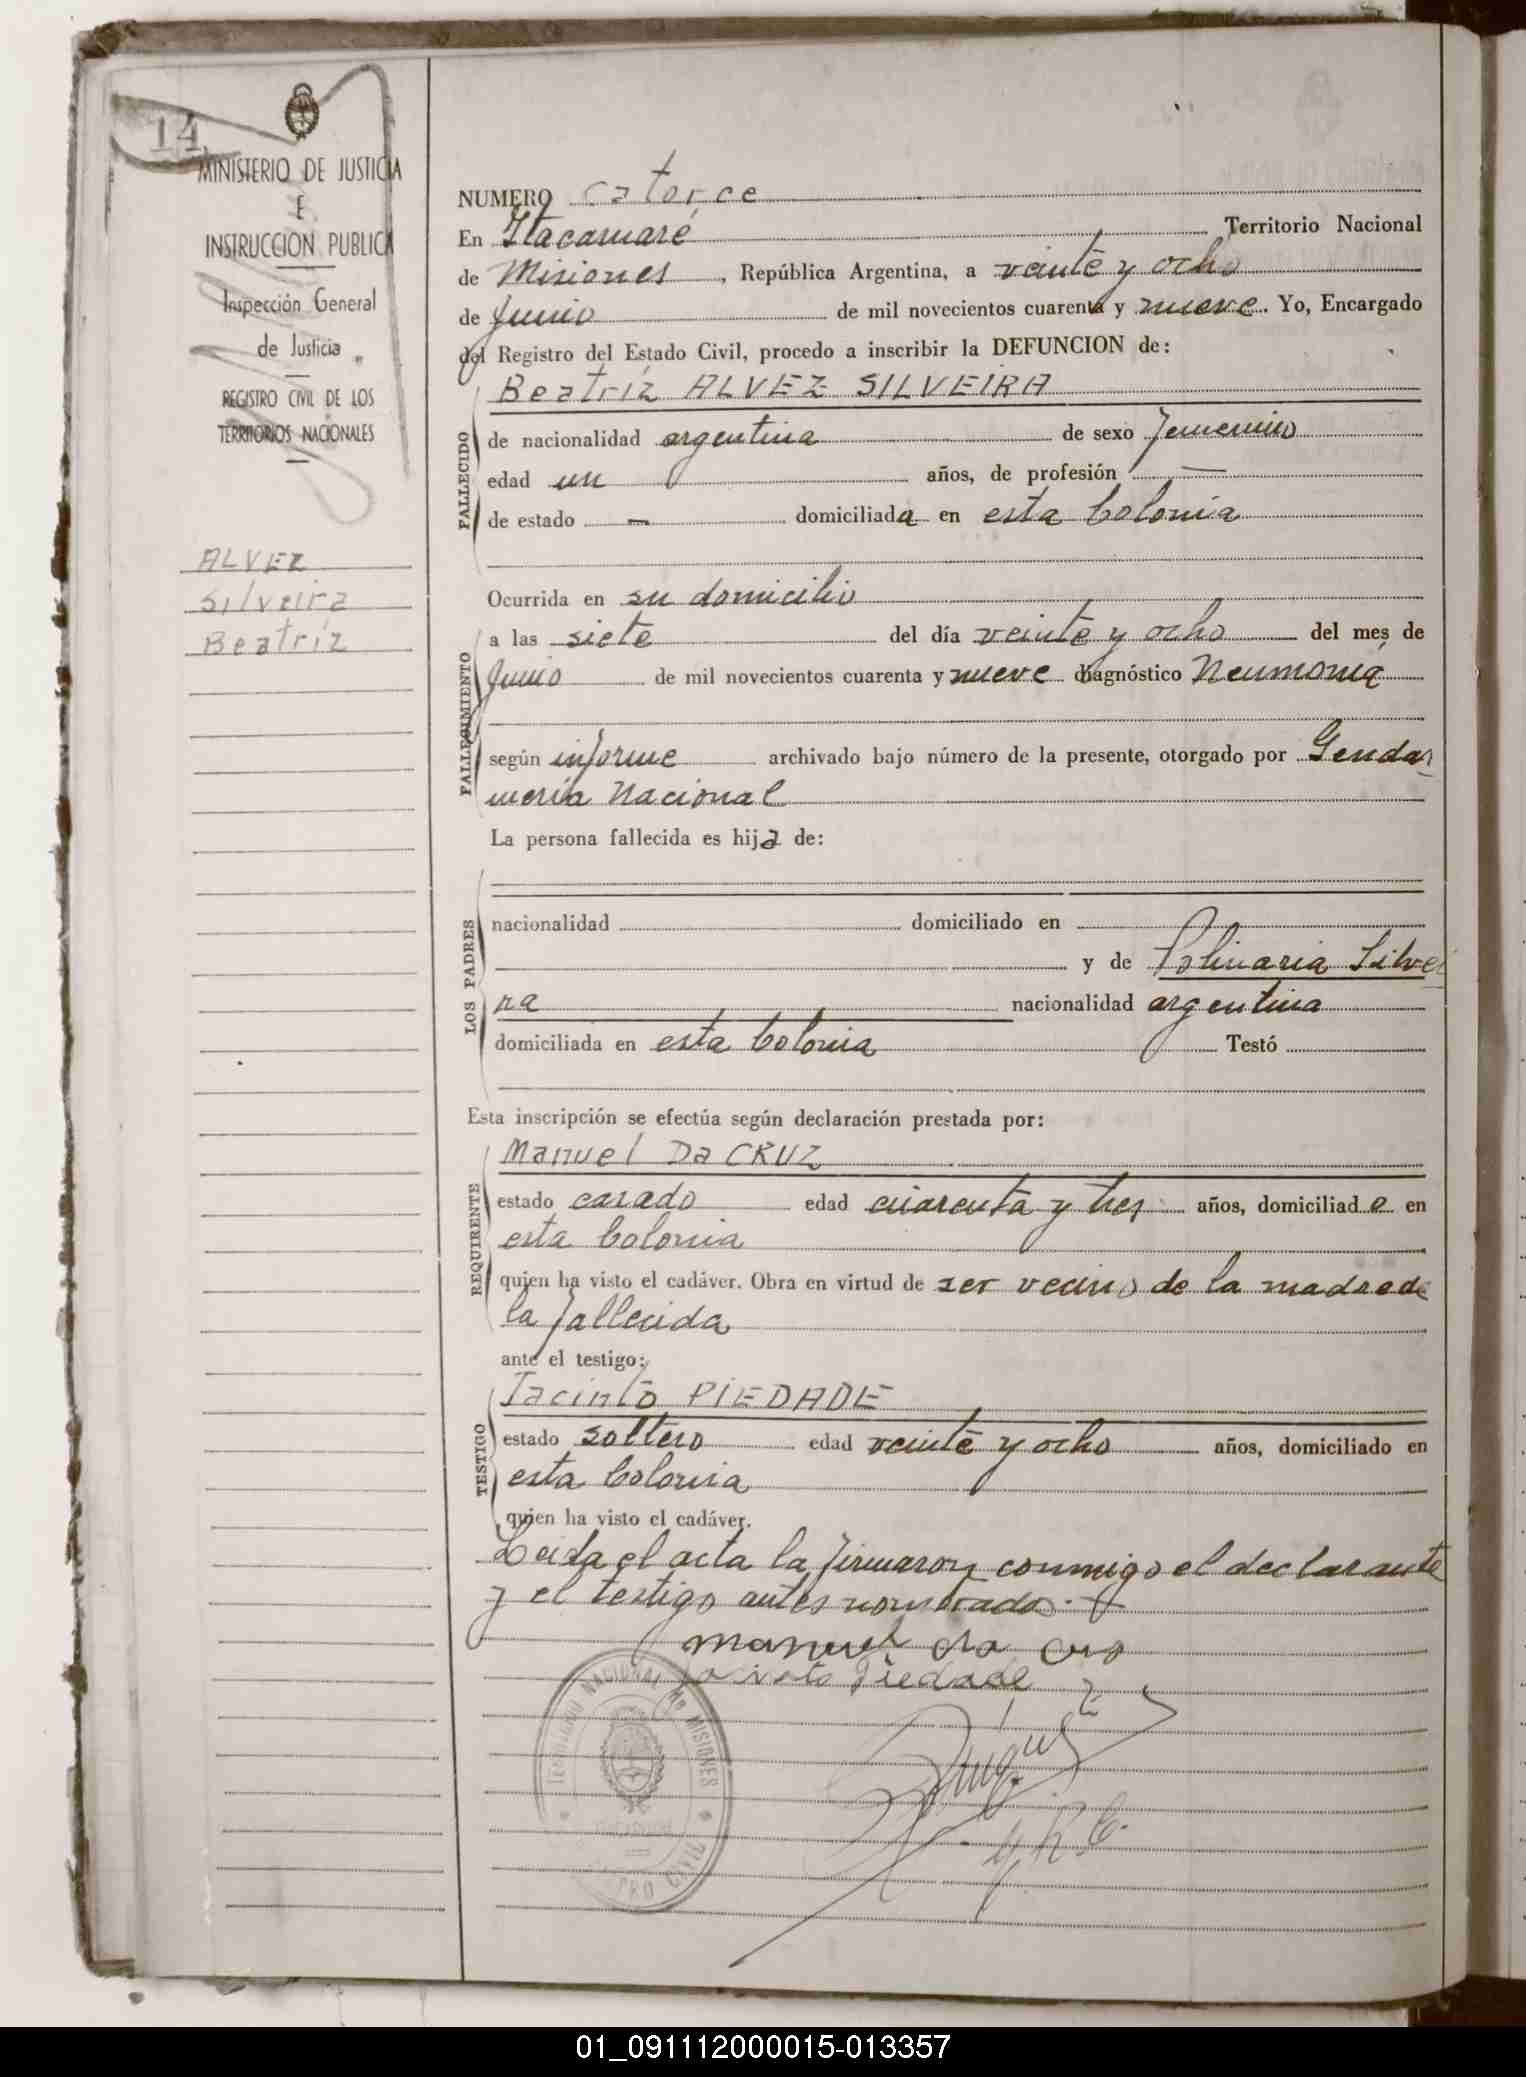 14
MINISTERIO DE JUSTICIA
E
INSTRUCCION PUBLICA
Inspección General
de Justicia
REGISTRO CIVIL DE LOS
TERRITORIOS NACIONALES
ALVEZ
Silveira
Beatríz
NUMERO catorce
En Itacaruaré Territorio Nacional
de Misiones, República Argentina, a veinte y ocho
de Junio de mil novecientos cuarenta y nueve. Yo, Encargado
del Registro del Estado Civil, procedo a inscribir la DEFUNCION de:
Beatríz ALVEZ SILVEIRA
FALLECIDO
de nacionalidad argentina de sexo femenino
edad un años, de profesión —
de estado — domiciliada en esta Colonia
Ocurrida en su domicilio
FALLECIMIENTO
a las siete del día veinte y ocho del mes de
Junio de mil novecientos cuarenta y nueve diagnóstico Neumonía
según informe archivado bajo número de la presente, otorgado por Gendar
mería Nacional
La persona fallecida es hija de:
LOS PADRES
nacionalidad domiciliado en
y de Polinaria Silvei
ra nacionalidad argentina
domiciliada en esta Colonia Testó
Esta inscripción se efectúa según declaración prestada por:
Manuel Da CRUZ
REQUIRENTE
estado casado edad cuarenta y tres años, domiciliado en
esta Colonia
quien ha visto el cadáver. Obra en virtud de ser vecino de la madre de
la fallecida
ante el testigo:
Jacinto PIEDADE
TESTIGO
estado soltero edad veinte y ocho años, domiciliado en
esta Colonia
quien ha visto el cadáver.
Leida el acta la firmaron conmigo el declarante
y el testigo antes nombrado.
manuel da
Piedade
TERRITORIO NACIONAL DE MISIONES
REGISTRO CIVIL
01_091112000015-013357